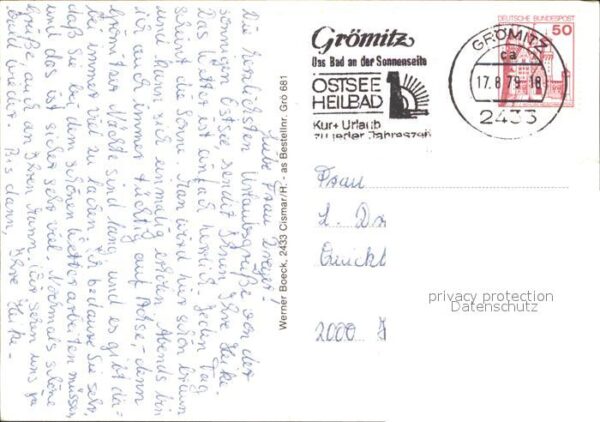 Liebe Frau Dreyer!
Die herzlichsten Urlaubsgrüße von der
sonnigen Ostsee sendet Ihnen Ihre Heike.
Das Wetter ist einfach herrlich. Jeden Tag
scheint die Sonne. Man wird hier schön braun
und kann sich einmalig erholen. Abends bin
ich auch immer tüchtig auf Achse, - denn
Grömitzer Nächte sind lang und es gibt da-
bei immer viel zu lachen. Ich bedaure Sie sehr,
daß Sie bei dem schönen Wetter arbeiten müssen
und das ist sicher sehr viel. Nochmals schöne
Grüße, auch an Ihren Mann. Wir sehen uns ja
bald wieder. Bis dann, Ihre Heike -
Werner Boeck, 2433 Cismar/H. - as Bestellnr. Grö 681
Grömitz
Das Bad an der Sonnenseite
OSTSEE
HEILBAD
Kur + Urlaub
zu jeder Jahreszeit
DEUTSCHE BUNDESPOST
50
GRÖMITZ
ca
17.8.79-18
2433
Frau
L. Dr
Quickb
2000 H
privacy protection
Datenschutz